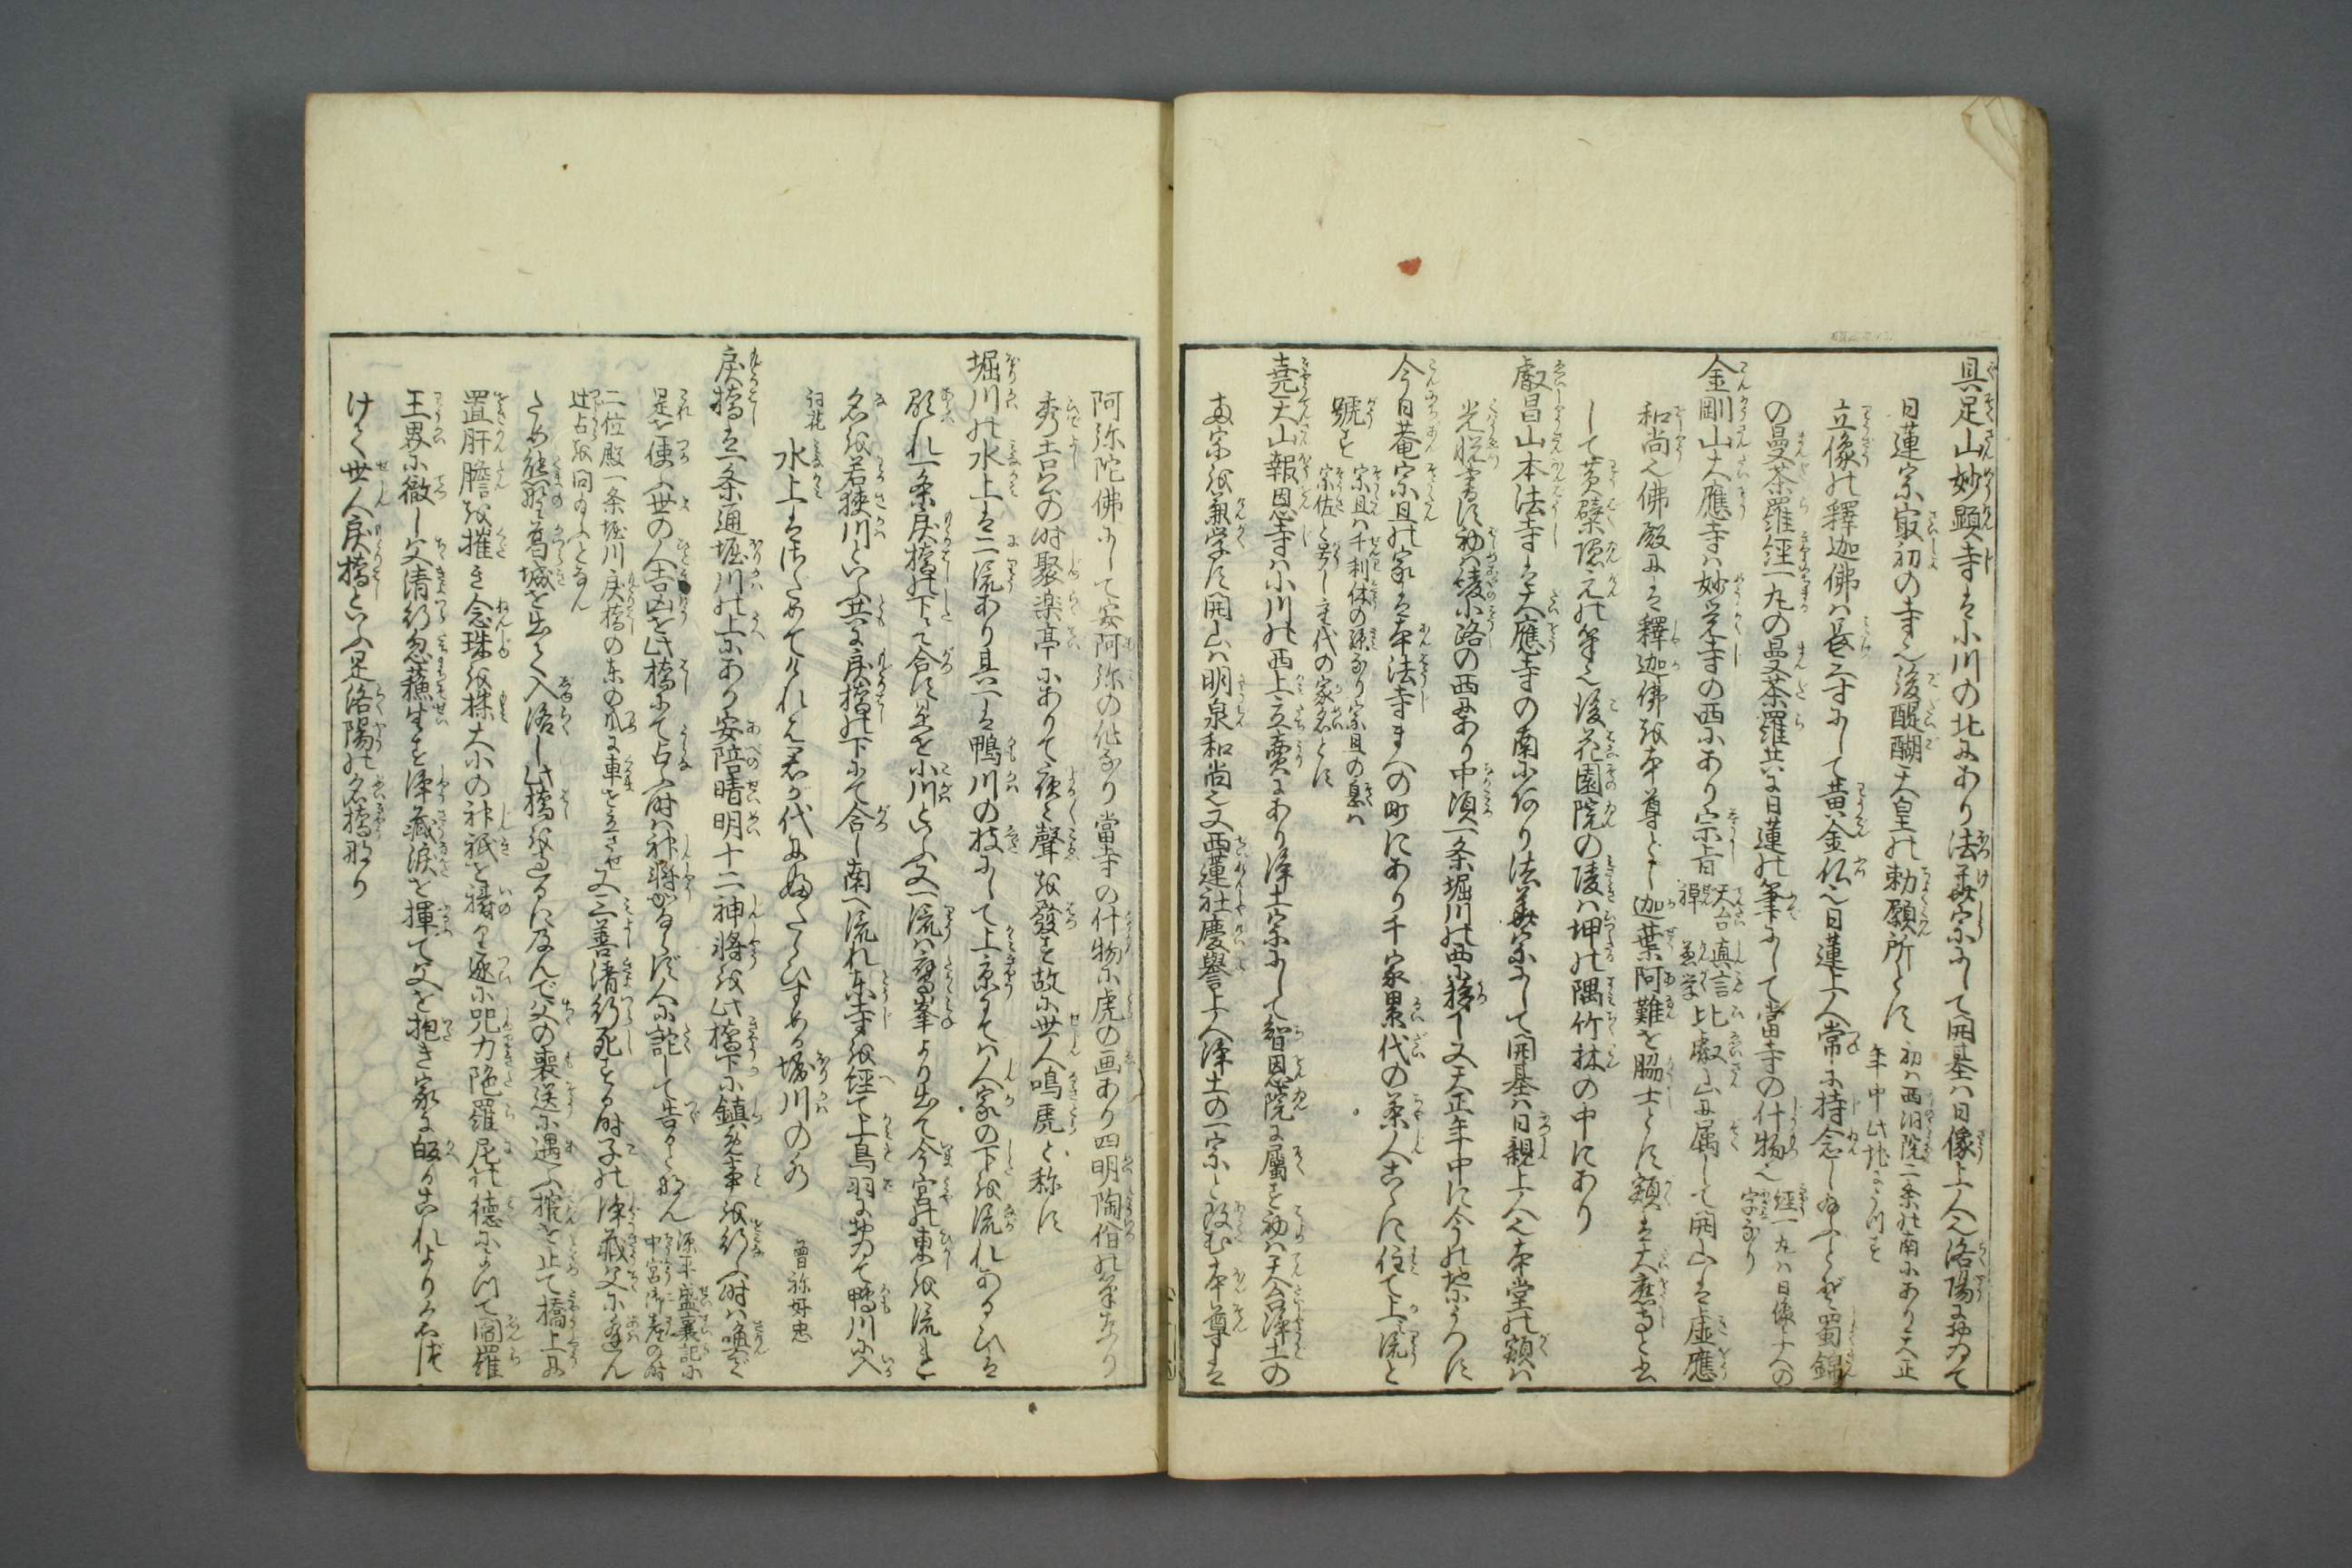 具足山妙顕寺は小川の北にあり法華宗にして開基は日像上人也洛陽に於て
日蓮宗最初の寺也後醍醐天皇の勅願所とす 初は西洞院二条の南にあり天正年中此地にうつす
立像の釋迦佛は長三寸にして黄金仏也日蓮上人常に持念し給ふとぞ蜀錦
の曼荼羅経一丸の曼荼羅共に日蓮の筆にして當寺の什物也 経一丸は日像上人の字なり
金剛山大應寺は妙覚寺の西にあり宗旨 天台真言禅兼学 比叡山に属して開山は虚應
和尚也佛殿には釋迦佛を本尊とし迦葉阿難を脇士とす額は大應寺と書
して黄檗隠元の筆也後花園院の陵は坤の隅竹林の中にあり
叡昌山本法寺は大應寺の南に隣り法華宗にして開基は日親上人也本堂の額は
光悦書す初は綾小路の西にあり中頃一条堀川の西に移し又天正年中に今の地にうつす
今日菴宗旦の家は本法寺まへの町にあり千家累代の茶人こゝに住て上流と
號す 宗旦は千利休の孫なり宗旦の息は宗佐と号し主代の家名とす
堯天山報恩寺は小川の西上立賣にあり浄土宗にして智恩院に属す初は天台浄土の
両宗を兼学す開山は明泉和尚也又西蓮社慶譽上人浄土の一宗に改む本尊は
阿弥陀佛にして安阿弥の作なり當寺の什物に虎の画あり四明陶佾の筆なり
秀吉公の時聚楽亭にありて夜々聲を發す故に世人鳴虎と称す
堀川の水上は二流あり其一は鴨川の枝にして上京にては人家の下を流れあるひは
顕れ一条戻橋の下にて合す是を小川といふ又一流は鷹峯より出て今宮の東を流れ
名を若狭川といふ共に戻橋の下にて合し南へ流れ東寺を経て上鳥羽に於て鴨川に入
詞花 水上はさだめてければ君が代にふたゝびすめる堀川の水 曽祢好忠
戻橋は一条通堀川の上にあり安陪晴明十二神將を此橋下に鎮め事を行ふ時は喚で
是を使ふ世の人吉凶を此橋にて占ふ時は神將かならず人に詫して告るとなん 源平盛衰記に中宮御産の時
二位殿一条堀川戻橋の東の爪に車を立させ辻占を問給ふとなん 又三善清行死する時子の浄蔵父に逢ん
ため熊野葛城を出て入洛し此橋を過るに及んで父の喪送に遇ふ棺を止て橋上に
置肝膽を摧き念珠を揉大小の神祇を祷り遂に咒力陀羅尼の徳によつて閻羅
王界に徹し父清行忽蘇生す浄蔵涙を揮て父を抱き家に皈るこれより名づ
けて世人戻橋といふ是洛陽の名橋なり